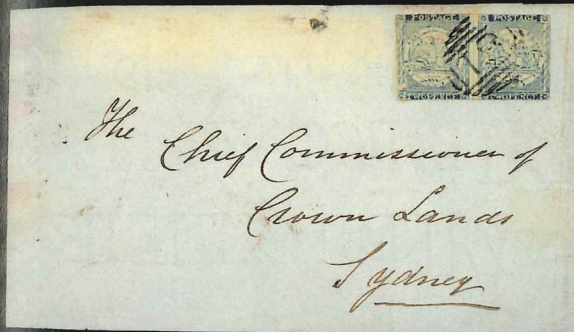 POSTAGE POSTAGE
TWOPENCE TWOPENCE
The Chief Commissioner of
Crown Lands
Sydney